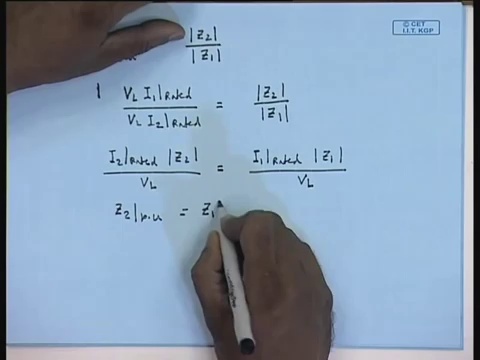 © CET
I.I.T. KGP
|Z₂| / |Z₁|
V_L I₁|Rated / V_L I₂|Rated = |Z₂| / |Z₁|
I₂|Rated |Z₂| / V_L = I₁|Rated |Z₁| / V_L
Z₂|p.u = Z₁